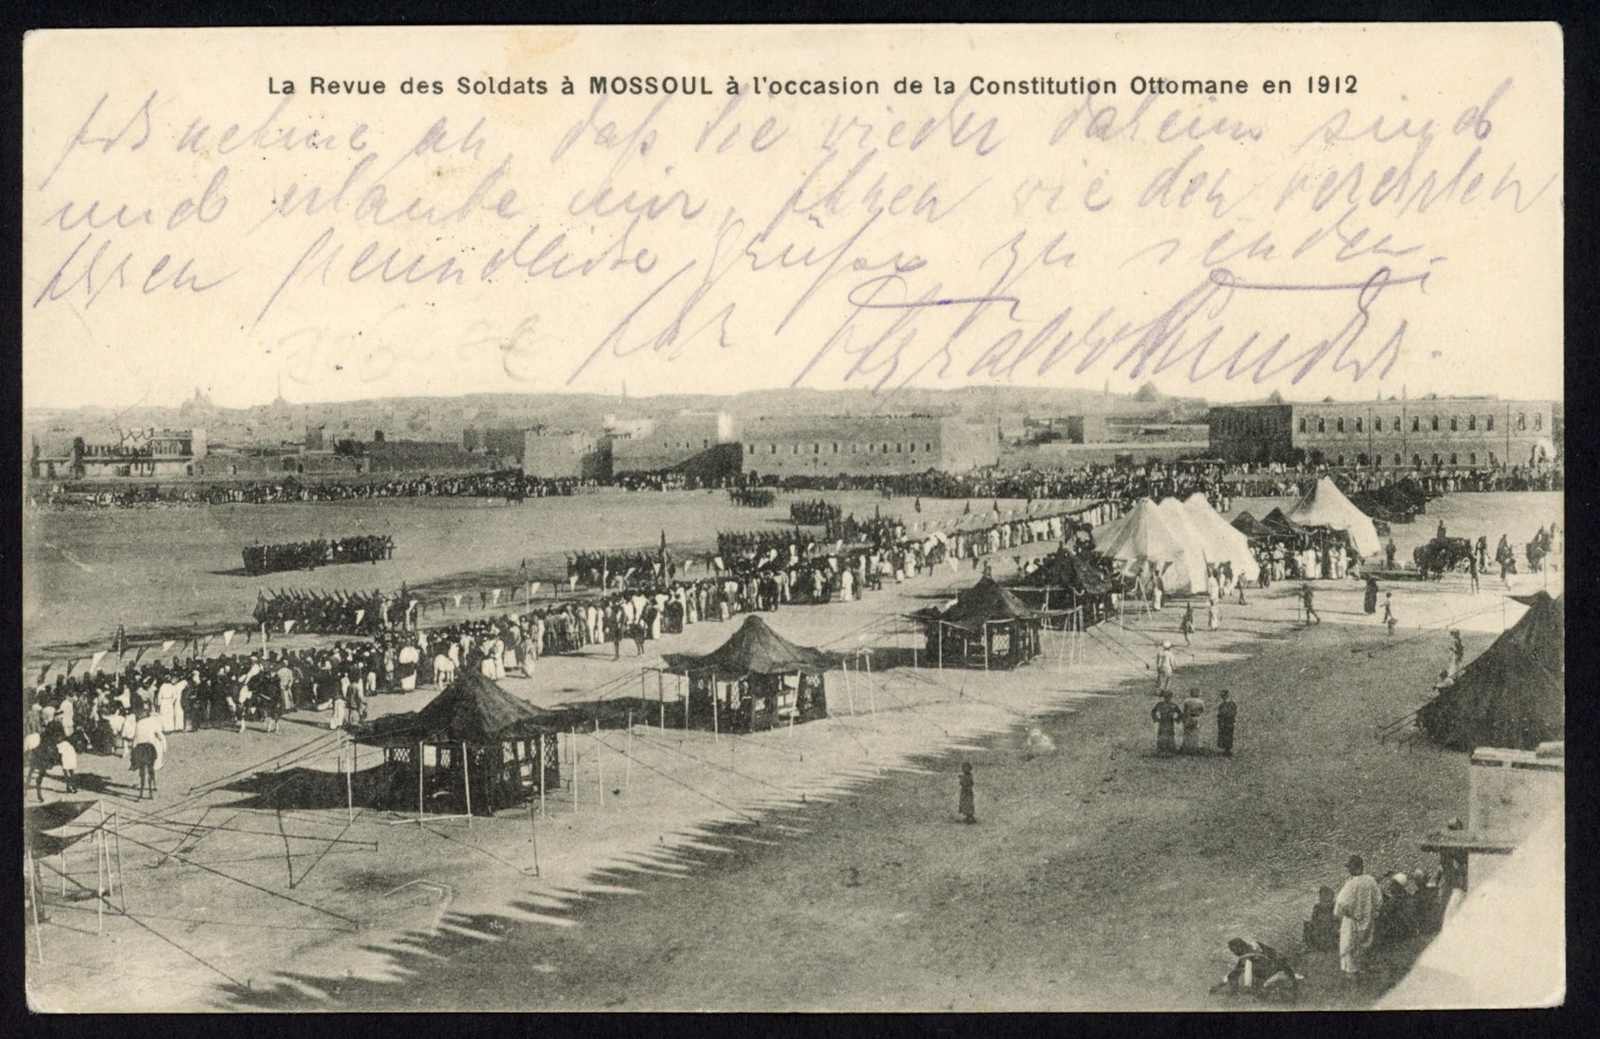 La Revue des Soldats à MOSSOUL à l'occasion de la Constitution Ottomane en 1912
Ich nehme an, daß Sie wieder daheim sind
und erlaube mir, Ihnen wie den verehrten
Ihren freundliche Grüße zu senden.
Ihr